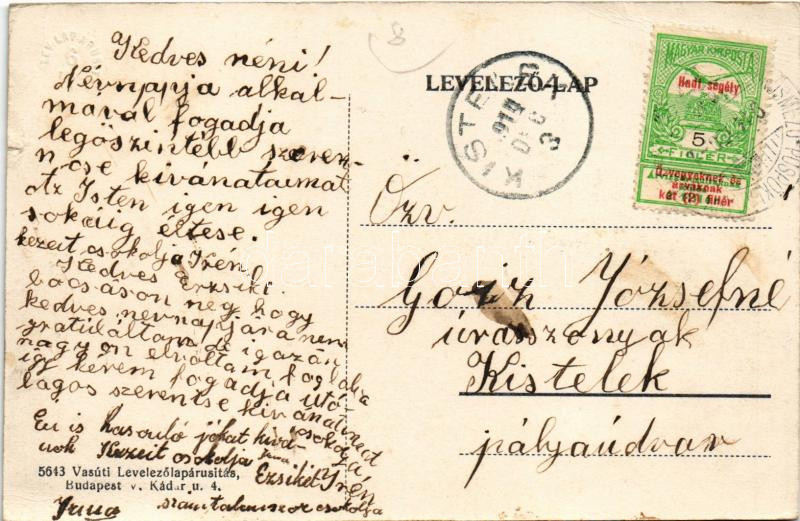 Kedves néni!
Névnapja alkal-
mával fogadja
legőszintébb szeren-
cse kivánataimat
Az Isten igen igen
sokáig éltese.
kezeit csokolja Irén
Kedves Erzsiki
bocsáson meg hogy
kedves nevnapjára nem
gratuláltam de igazán
nagyon elvoltam foglalva
igy kérem fogadja utó-
lagos szerentse kivánatimat
csokolja
Irén
Én is hasonló jókat kivá
nok Kezeit csokolja
Ezsikét
Irma számtalanszor csokolja
5643 Vasúti Levelezőlapárusitás,
Budapest V. Kádár u. 4.
8
LEVELEZŐ-LAP
KISTELEK
914 DEC 3
MAGYAR KIR. POSTA
Hadi segély
5
FILLÉR
Özvegyeknek és
árváknak
két (2) fillér
Özv.
Józsefné
úrasszonyak
Kistelek
pályaúdvar